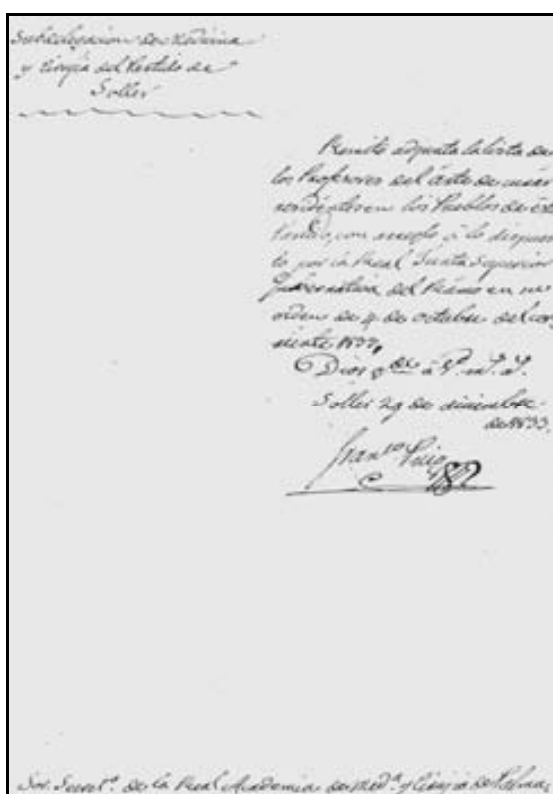 Subdelegacion de Medicina
y Cirugia del Partido de
Soller
Remito adjunta la lista de
los Profesores del Arte de curar
residentes en los Pueblos de este
Partido, con arreglo á lo dispues
to por la Real Junta Superior
Gubernativa del Ramo en su
orden de 4 de octubre del cor
riente 1833,
Dios gde á V. m.s a.s
Soller 29 de diciembre
de 1833.
Franco Puig
Sor. Secreto. de la Real Academia de Meda. y Cirugia de Palma,